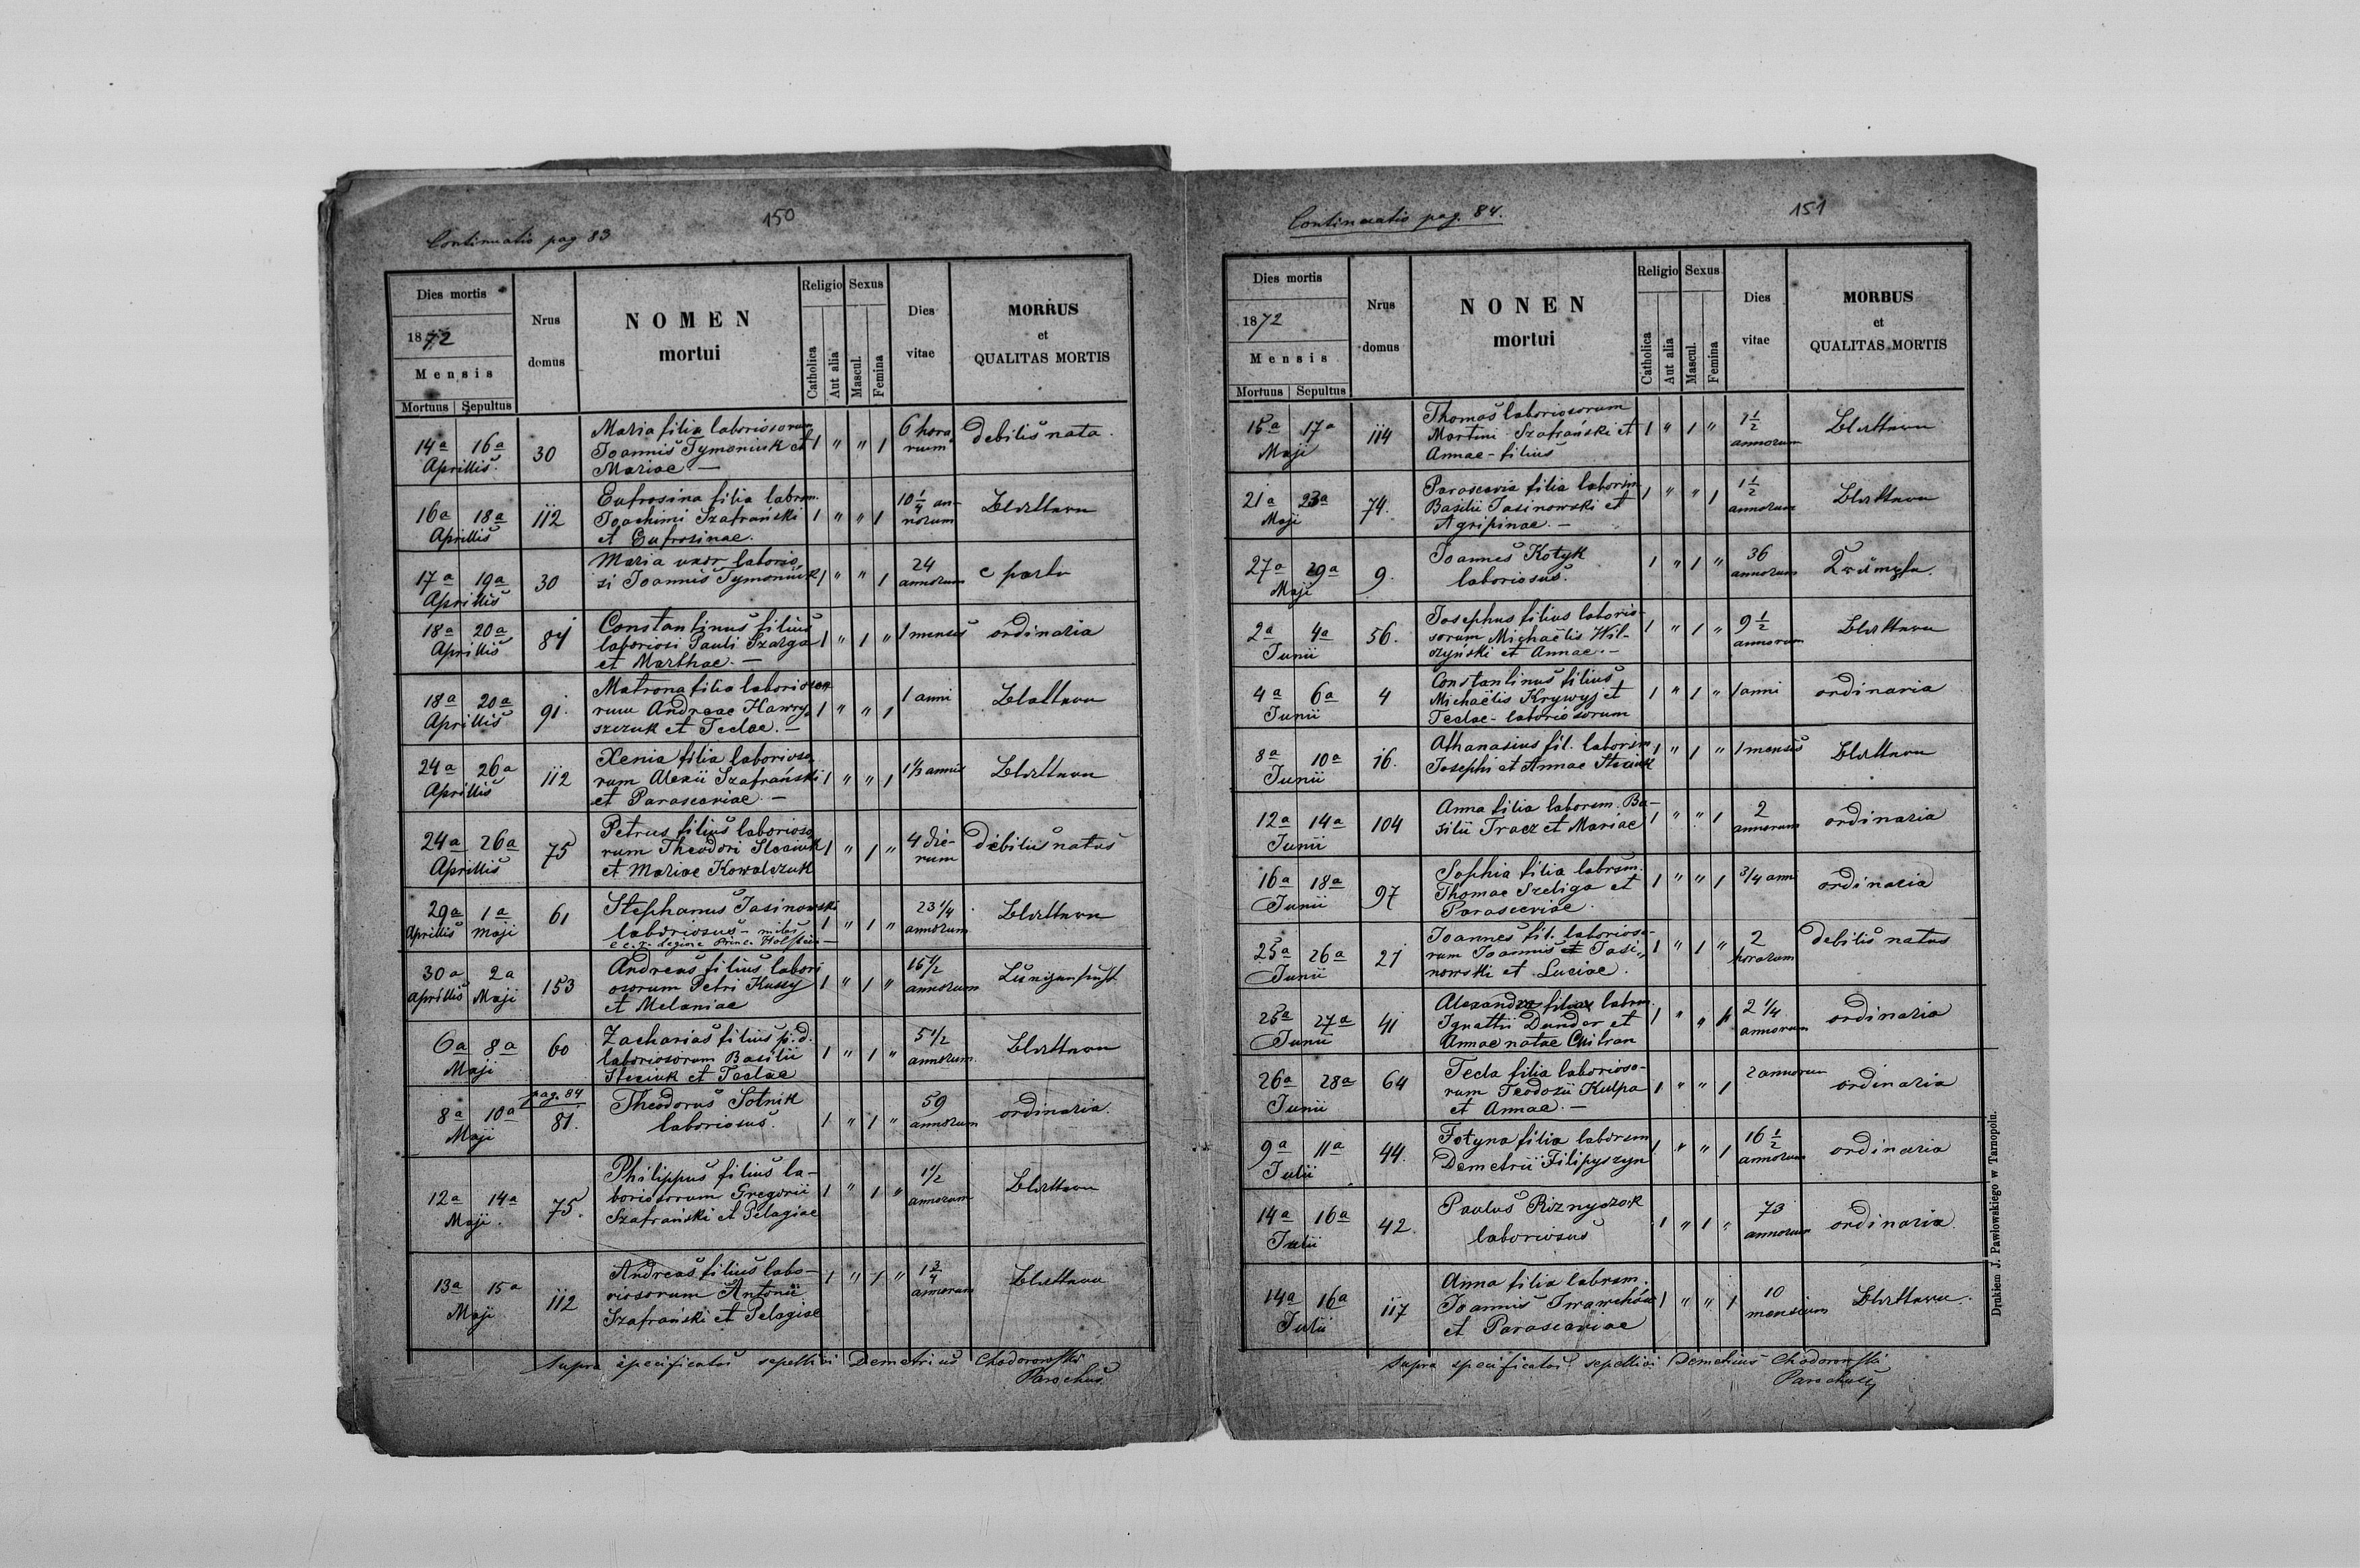 150
Continuatio pag 83
Dies mortis
1872
Mensis
Mortuus Sepultus
Nrus
domus
NOMEN
mortui
Religio
Catholica
Aut alia
Sexus
Mascul.
Femina
Dies
vitae
MORRUS
et
QUALITAS MORTIS
14a 16a
Aprillis
30
Maria filia laboriosorum
Joannis Tymoniuk et
Mariae —
1 " " 1
6 hora
rum
debilis nata.
16a 18a
Aprillis
112
Eufrosina filia labrsm.
Joachimi Szafrański
et Eufrosinae.
1 " " 1
10 1/4 an-
norum
Blattern
17a 19a
Aprillis
30
Maria uxor laborio
si Joannis Tymoniuk
1 " " 1
24
annorum
e partu
18a 20a
Aprillis
84
Constantinus filius
laboriosi Pauli Szarga
et Marthae. —
1 " 1 "
1 mensis
ordinaria
18a 20a
Aprillis
91.
Matrona filia irio
rum Andreae Hawry
szczuk et Teclae. —
1 " " 1
1 anni
Blattern
24a 26a
Aprillis
112
Xenia filia laborioso
rum Alexii Szafrański
et Parasceviae. —
1 " " 1
1 1/2 annis
Blattern
24a 26a
Aprillis
75
Petrus filius lalorioso
rum Theodori Steciuk
et Mariae Kowalczuk
1 " 1 "
4 die-
rum
debilis natus
29a 1a
Aprillis Maji
61
Stephanus Jasinowski
laboriosus — miles
c.c.r. legione Princ. Holstein —
1 " 1 "
23 1/4
annorum
Blattern
30a 2a
Aprillis Maji
153
Andreas filius labori
osorum Petri Kussy
et Melaniae
1 " 1 "
16 1/2
annorum
Lungensucht
6a 8a
Maji
60
Zacharias filius p.d.
laboriosorum Basilii
Steciuk et Teclae
1 " 1 "
5 1/2
annorum.
Blattern
pag. 84
8a 10a
Maji
81.
Theodorus Sotnik
laboriosus.
1 " 1 "
59
annorum
ordinaria.
12a 14a
Maji.
75.
Philippus filius la-
boriosorum Gregorii
Szafrański et Pelagiae
1 " 1 "
1 1/2
annorum
Blattern
13a 15a
Maji
112
Andreas filius labo-
riosorum Antonii
Szafrański et Pelagiae
1 " 1 "
1 3/4
annorum
Blattern
Supra specificatos sepellivi Demetrius Chodorowski
Parochus
Continuatio pag. 84.
151
Dies mortis
1872
Mensis
Mortuus Sepultus
Nrus
domus
NONEN
mortui
Religio
Catholica
Aut alia
Sexus
Mascul.
Femina
Dies
vitae
MORBUS
et
QUALITAS MORTIS
15a 17a
Maji
114
Thomas laboriosorum
Martini Szafrański et
Annae - filius
1 " 1 "
1 1/2
annorum
Blattern
21a 23a
Maji
74.
Parascevia filia laborsm
Basilii Jasinowski et
Agripinae. —
1 " " 1
1 1/2
annorum
Blattern
27a 29a
Maji
9.
Joannes Kotyk
laboriosus.
1 " 1 "
36
annorum
2a 4a
Junii
56.
Josephus filius laborio-
sorum Michaëlis Wil-
czyński et Annae. —
1 " 1 "
9 1/2
annorum
Blattern
4a 6a
Junii
4
Constantinus filius
Michaëlis Krywyj et
Teclae - laboriosorum
1 " 1 "
1 anni
ordinaria
8a 10a
Junii
16.
Athanasius fil. laborsm
Josephi et Annae Steciuk
1 " 1 "
1 mensis
Blattern
12a 14a
Junii
104
Anna filia laborsm. Ba-
silii Tracz et Mariae
1 " " 1
2
annorum
ordinaria
16a 18a
Junii
97
Sophia filia labrsm.
Thomae Szeliga et
Parasceviae.
1 " " 1
3/4 anni
ordinaria
25a 26a
Junii
21
Joannes fil. laborioso-
rum Joannis et Jasi„
nowski et Luciae.
1 " 1 "
2
horarum
debilis natus
25a 27a
Junii
41
Alexandra filiae labrsm.
Ignattii Dundor et
Annae natae
1 " " 1
2 1/4
annorum
ordinaria
26a 28a
Junii
64
Tecla filia laborioso-
rum Teodozii Kulpa
et Annae. —
1 " " 1
2 annorum
ordinaria
9a 11a
Julii
44.
Fotyna filia laborsm
Demetrii Filipyszyn
1 " " 1
16 1/2
annorum
ordinaria
14a 16a
Julii
42.
Paulus Riznyczok
laboriosus
1 " 1 "
73
annorum
ordinaria.
14a 16a
Julii
117
Anna filia labrsm.
Joannis Iwanchów
et Parasceviae
1 " " 1
10
mensium
Blattern.
Supra specificatos sepellivi Demetrius Chodorowski
Parochus
Drukiem J. Pawłowskiego w Tarnopolu.